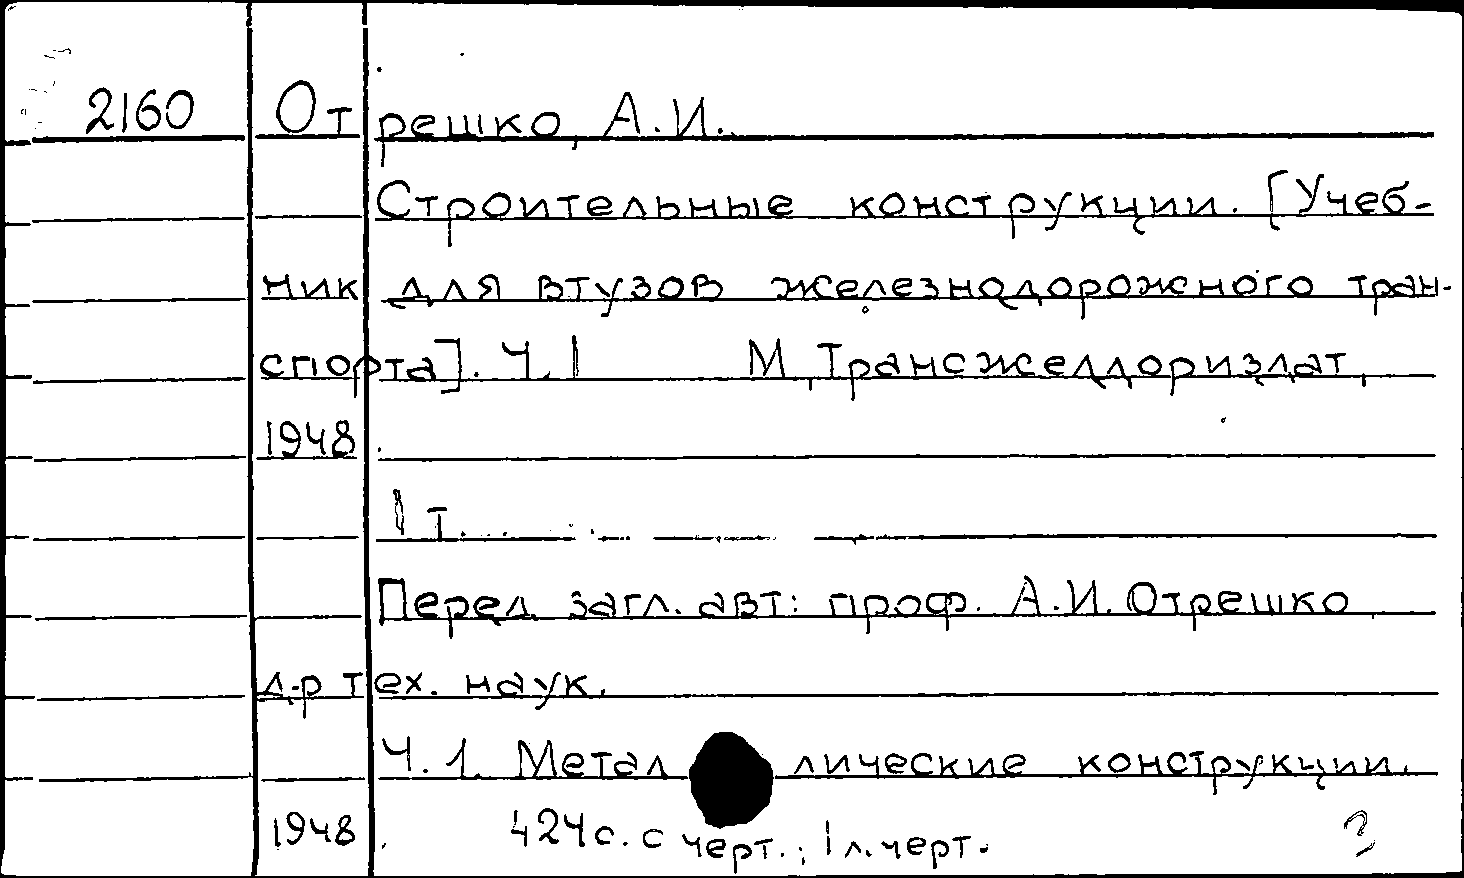 2160 Отрешко, А.И.
Строительные конструкции. [Учеб-
ник для втузов железнодорожного тран-
спорта]. Ч.I М, Трансжелдориздат,
1948.
I т.
Перед загл. авт: проф. А.И. Отрешко
д-р тех. наук.
Ч.1. Металлические конструкции.
1948. 424с. с черт.; 1 л. черт.